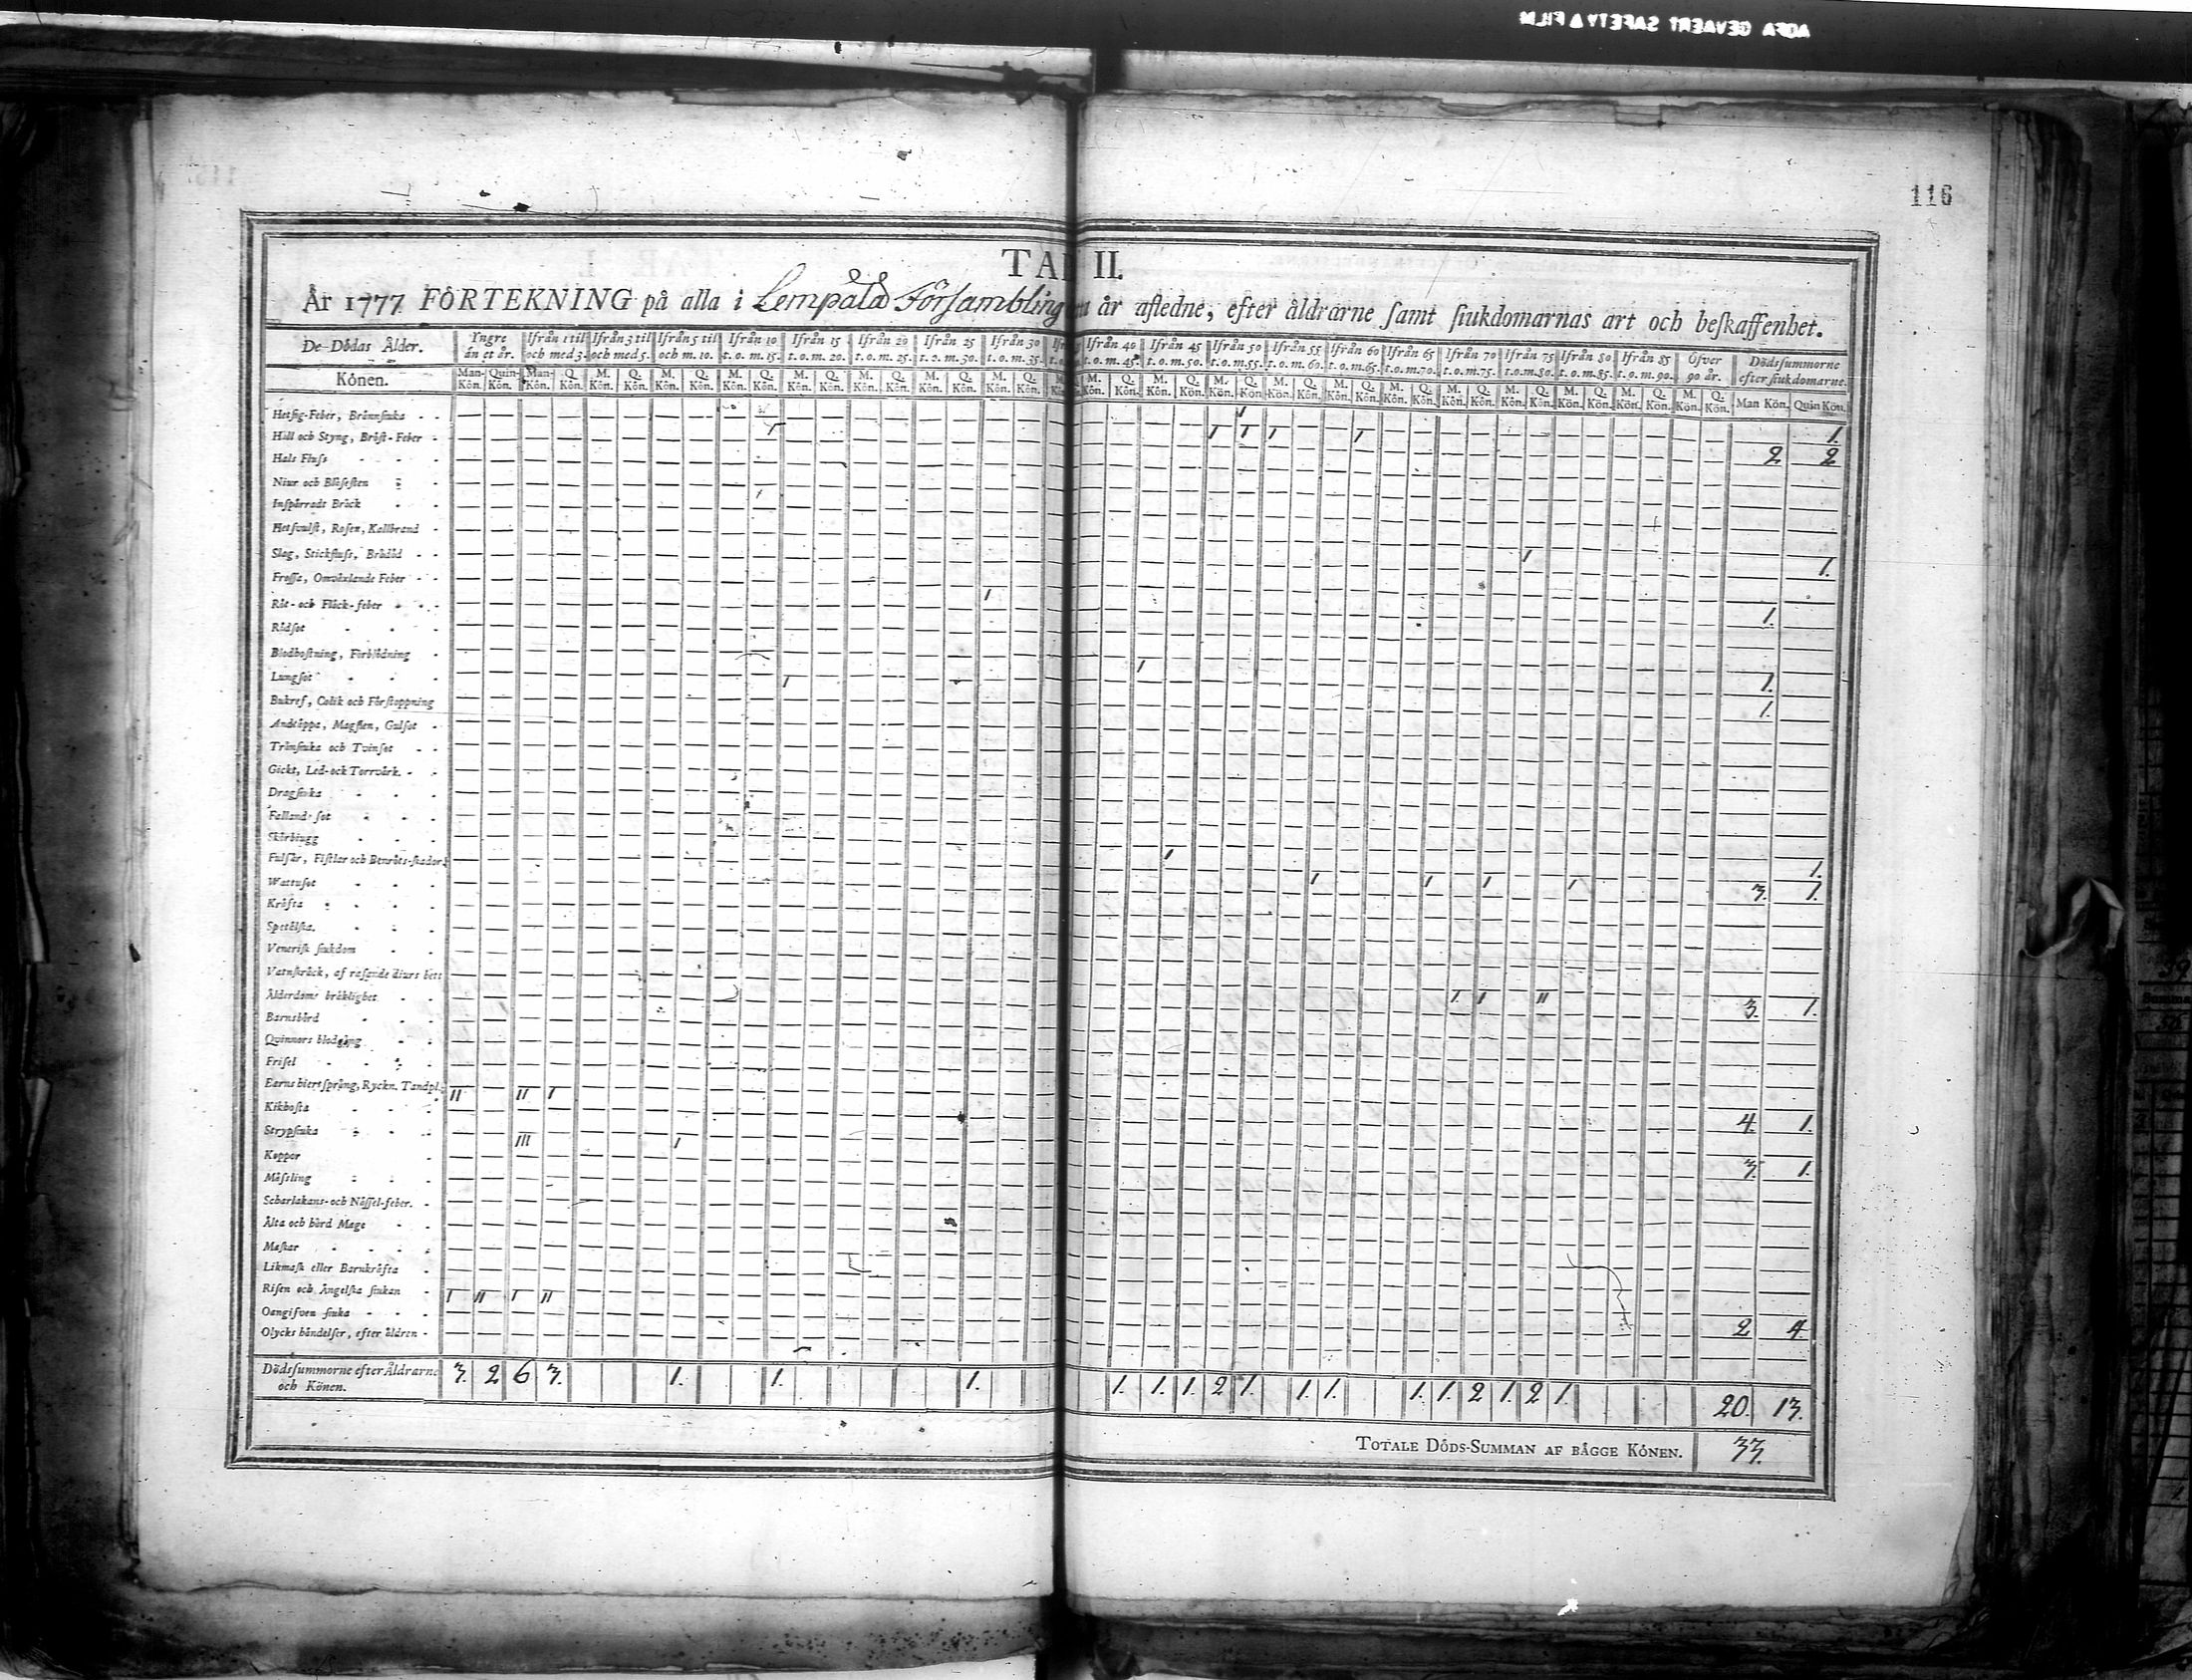 AGFA GEVAERT SAFETY FILM
116
TAB II.
År 1777 FÖRTEKNING på alla i Lempälä Försambling år afledne, efter åldrarne samt siukdomarnas art och beskaffenhet.
De Dödas Ålder. Yngre än et år. Ifrån 1 til och med 3. Ifrån 3 til och med 5. Ifrån 5 til och m. 10. Ifrån 10 t.o.m. 15. Ifrån 15 t.o.m. 20. Ifrån 20 t.o.m. 25. Ifrån 25 t.o.m. 30. Ifrån 30 t.o.m. 35. Ifrån 40 t.o.m. 45. Ifrån 45 t.o.m. 50. Ifrån 50 t.o.m. 55. Ifrån 55 t.o.m. 60. Ifrån 60 t.o.m. 65. Ifrån 65 t.o.m. 70. Ifrån 70 t.o.m. 75. Ifrån 75 t.o.m. 80. Ifrån 80 t.o.m. 85. Ifrån 85 t.o.m. 90. Öfver 90 år. Dödssummorne efter siukdomarne.
Könen. Man-Kön. Quin-Kön. Man-Kön. Q. Kön. M. Kön. Q. Kön. M. Kön. Q. Kön. M. Kön. Q. Kön. M. Kön. Q. Kön. M. Kön. Q. Kön. M. Kön. Q. Kön. M. Kön. Q. Kön. M. Kön. Q. Kön. M. Kön. Q. Kön. M. Kön. Q. Kön. M. Kön. Q. Kön. M. Kön. Q. Kön. M. Kön. Q. Kön. M. Kön. Q. Kön. M. Kön. Q. Kön. M. Kön. Q. Kön. M. Kön. Q. Kön. M. Kön. Q. Kön. Man Kön. Quin Kön.
Hetsig-Feber, Brännsiuka 1 1.
Håll och Styng, Bröst-Feber 1 1 1 1 2 2
Hals Fluss
Niur och Blåsesten
Inspärradt Bråck
Hetsvulst, Rosen, Kallbrand
Slag, Stickfluss, Brådöd 1 1.
Frossa, Omväxlande Feber
Röt- och Fläck-feber 1 1.
Rödsot
Blodhostning, Förblödning 1 1.
Lungsot 1 1.
Bukref, Colik och Förstoppning
Andtäppa, Magsten, Gulsot
Tränsiuka och Tvinsot
Gickt, Led- och Torrvärk.
Dragsiuka
Falland-sot
Skörbiugg
Fulsår, Fistlar och Benröts-skador 1 1.
Wattusot 1 1 1 1 3. 1.
Kräfta
Spetälska.
Venerisk siukdom
Vatnskräck, af rasande diurs bett
Ålderdoms bräklighet 1 1 11 3. 1.
Barnsbörd
Quinnors blodgång
Frisel
Barns hiertsprång, Ryckn. Tandpl. 11 11 1 4. 1.
Kikhosta
Strypsiuka 111 1 3. 1.
Koppor
Mässling
Scharlakans- och Nässel-feber.
Älta och hård Mage
Maskar
Likmask eller Barnkräfta
Risen och Ängelska siukan 1 11 1 11 2 4.
Oangifven siuka
Olycks händelser, efter åldren
Dödssummorne efter Åldrarne och Könen. 3. 2 6 3. 1. 1. 1. 1. 1. 1. 2 1. 1. 1. 1. 1. 2 1. 2 1. 20. 13.
TOTALE DÖDS-SUMMAN AF BÄGGE KÖNEN. 33.